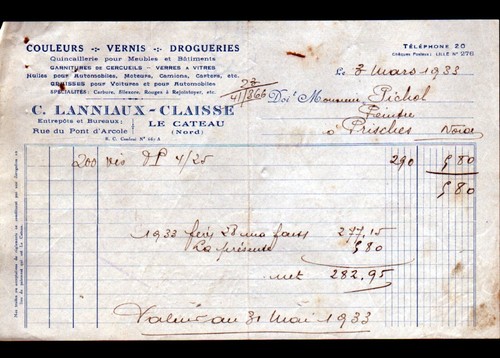 COULEURS -:- VERNIS -:- DROGUERIES
Quincaillerie pour Meubles et Bâtiments
GARNITURES DE CERCUEILS - VERRES A VITRES
Huiles pour Automobiles, Moteurs, Camions, Carters, etc.
GRAISSES pour Voitures et pour Automobiles
SPÉCIALITÉS : Carbure, Essences, Rouges à Rejointoyer, etc.
C. LANNIAUX-CLAISSE
Entrepôts et Bureaux :
Rue du Pont d'Arcole
LE CATEAU
(Nord)
TÉLÉPHONE 20
Chèques Postaux : LILLE N° 276
Le 3 Mars 1933
Doit Monsieur Pichol
Peintre
à Prisches Nord
200 vis DP 4/25 290 5 80
5 80
1933 fév 28 ma fact 277,15
La présente 5 80
net 282.95
Valeur au 31 Mai 1933